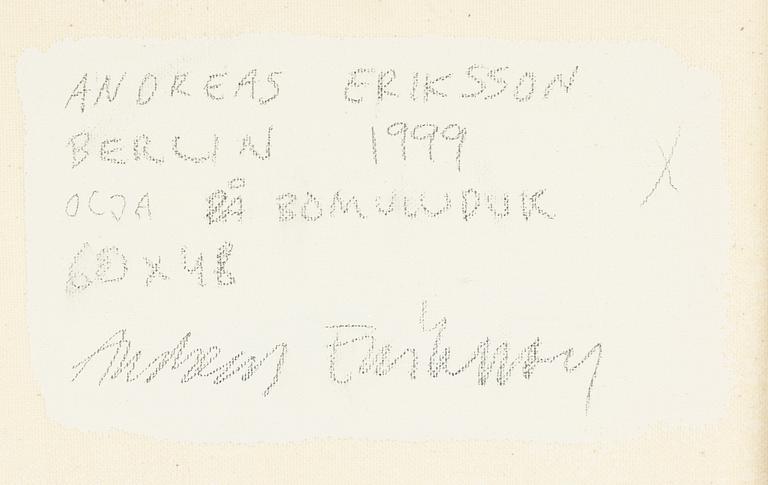 ANDREAS ERIKSSON
BERLIN 1999
OLJA PÅ BOMULLSDUK X
60 x 48
Andreas Eriksson